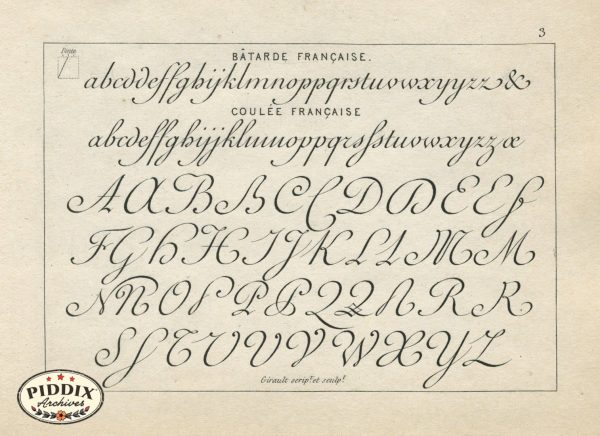 3
Pente
BÂTARDE FRANÇAISE.
abcddeffghijklmnoppqrstuvowxyyzz&
COULÉE FRANÇAISE
abcdeffghijjklmnoppqrsſstuvowxyzzæ
AABBCCDDEEF
FGhHIJKLLMM
NNOPPPQQRRR
SSTUUVVWXYZ
Girault scripᵗ. et sculpᵗ.
PIDDIX
Archives